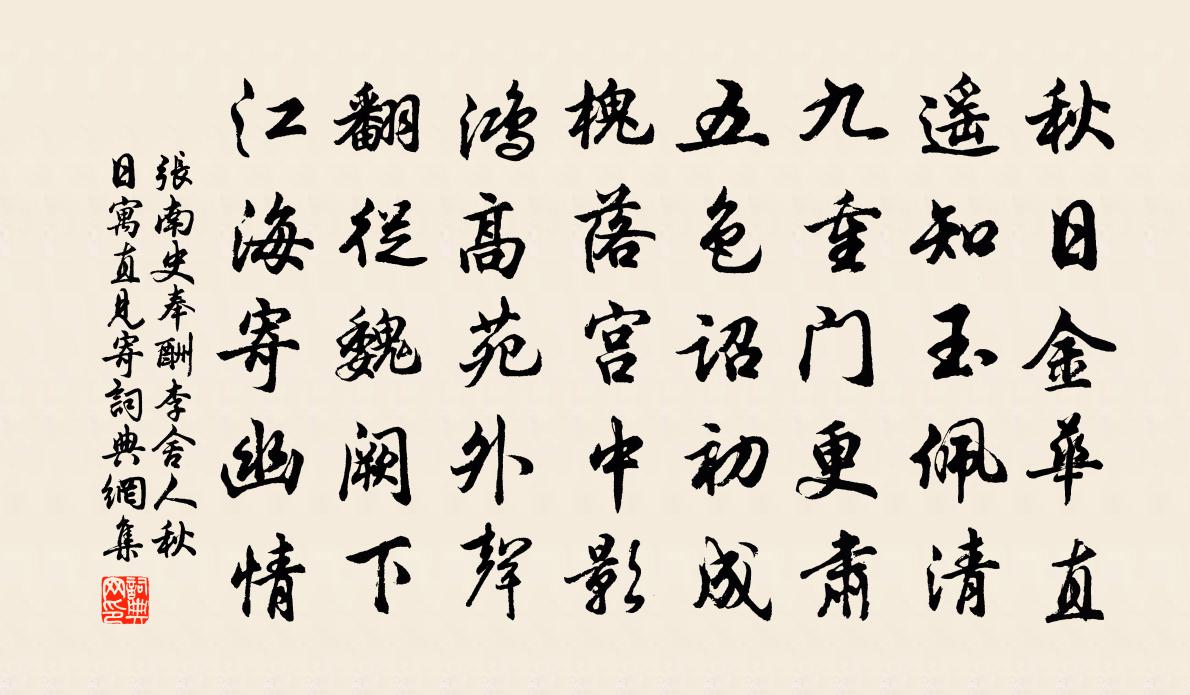 秋日金華直
遥知玉佩清
九重门更肅
五色诏初成
槐落宫中影
鸿高苑外聲
翻從魏阙下
江海寄幽情
張南史奉酬李舍人秋
日寓直見寄詞典網集
詞典
网印